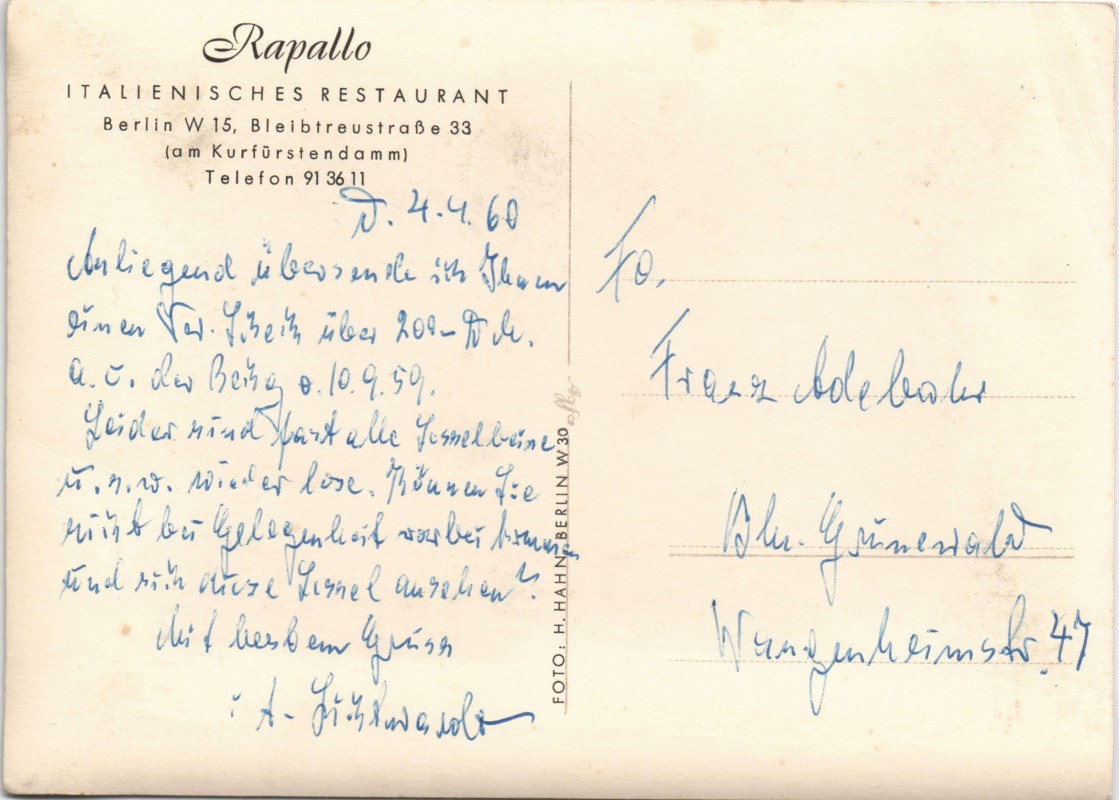 Rapallo
ITALIENISCHES RESTAURANT
Berlin W 15, Bleibtreustraße 33
(am Kurfürstendamm)
Telefon 91 36 11
4.4.60
Anliegend übersende ich Ihnen
einen Ver. Scheck über 200-
a. v. der 10.9.59.
Leider sind fast alle Sesselbeine
u.s.w. wieder lose. Können Sie
nicht bei Gelegenheit vorbei kommen
und sich diese Sessel ansehen?
Mit bestem Gruss
i A-
FOTO: H. HAHN, BERLIN W 30
Agfa
Fa.
Franz Adebahr
Bln. Grunewald
Wangenheimstr. 47